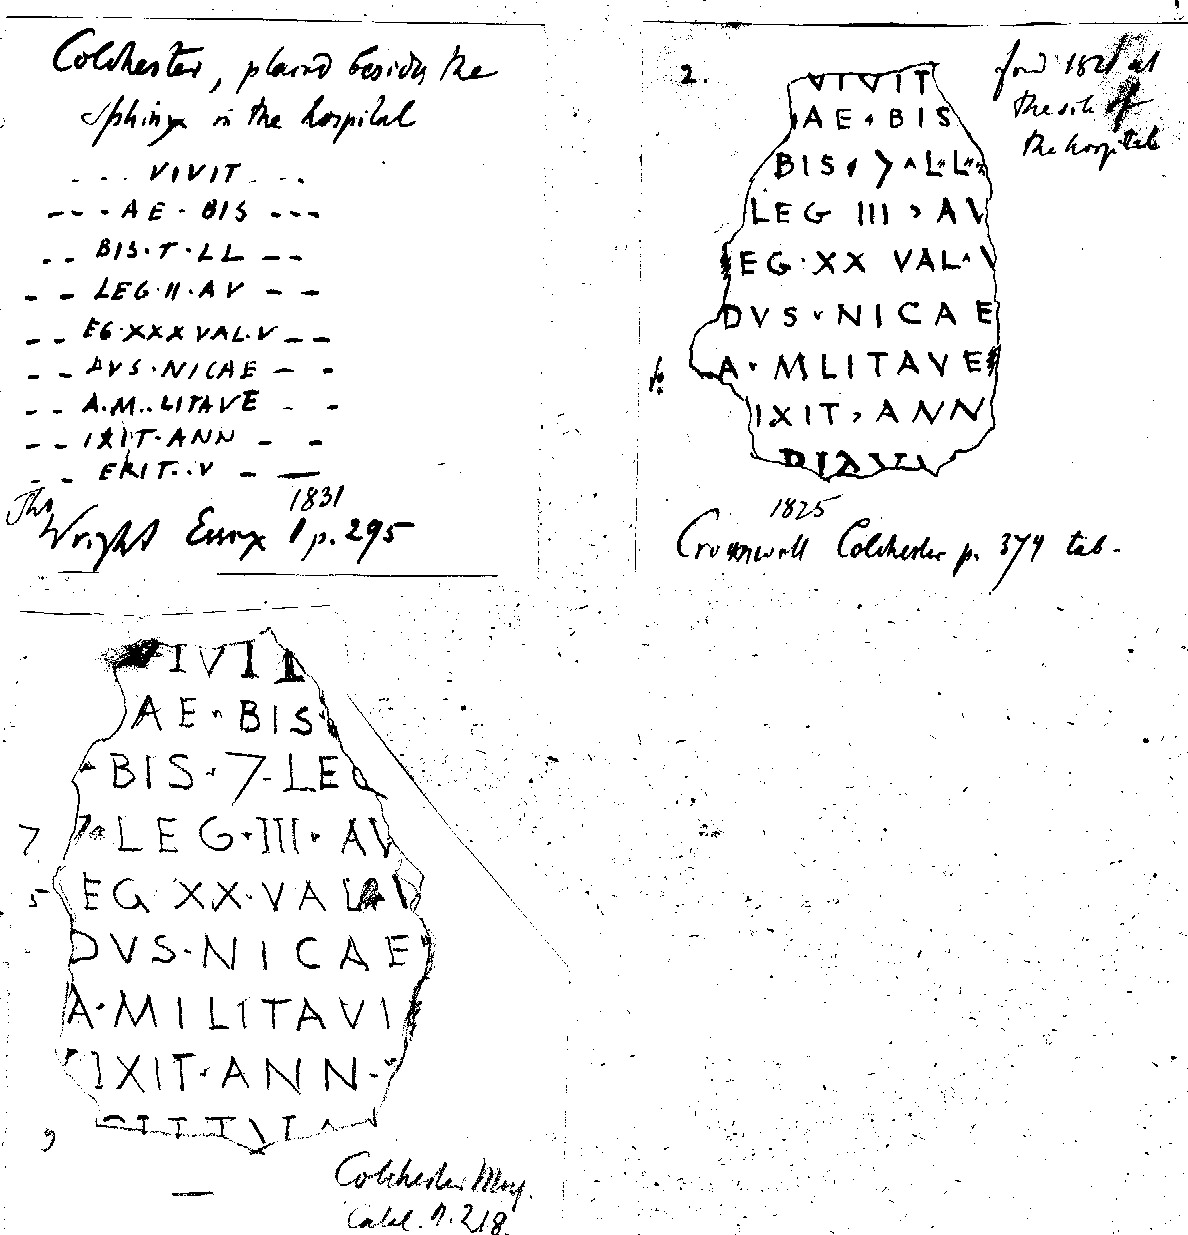 Colchester, placed beside the
Sphinx in the hospital
- - - VIVIT - - -
- - - AE · BIS - - -
- - BIS · T · LL - -
- - LEG · II · AV - -
- - EG · XXX VAL · V - -
- - DVS · NICAE - -
- - A · M . . LITAVE - -
- - IXIT · ANN - -
- - ERIT . . V - -
1831
Wright Essex I p. 295
2.
found 1821 at
the site of
the hospital
VIVIT
AE · BIS
BIS · 7 · L · L ·
LEG III > AV
EG · XX VAL · V
DVS · NICAE
A · MLITAVE
IXIT > ANN
1825
Cromwell Colchester p. 374 tab.
IVIT
AE · BIS
BIS · 7 · LEG
7 7 · LEG · III · AV
5 EG XX · VAL · V
DVS · NICAE
A · MILITAVI
IXIT · ANN ·
9
Colchester Mus.
Catal. n. 218